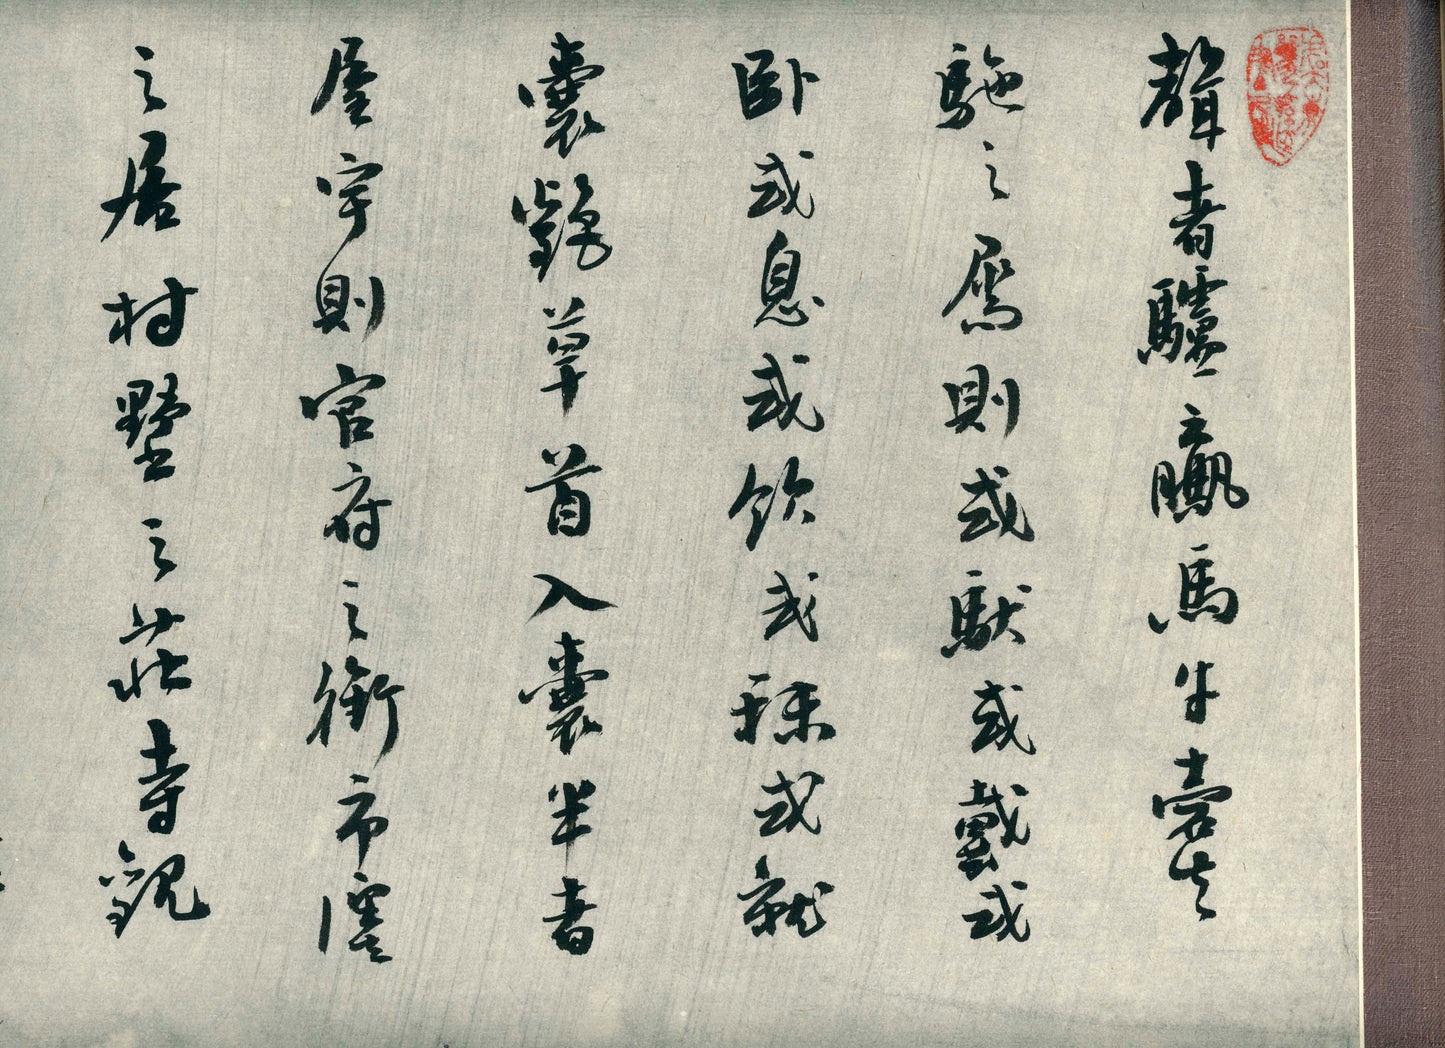 者驢驘馬牛橐
駞之屬則或馱或載或
臥或息或飲或秣或就
囊齕草首入囊半者
屋宇則官府之衙市廛
之居村墅之莊寺觀